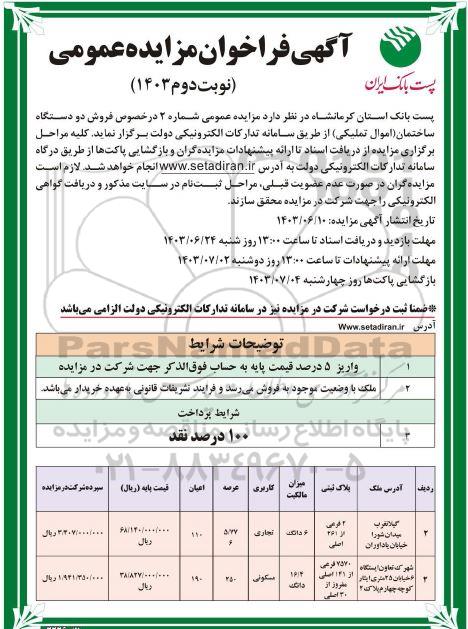 آگهی فراخوان مزایده عمومی
(نوبت دوم ۱۴۰۳)
پست بانک ایران
پست بانک استان کرمانشاه در نظر دارد مزایده عمومی شماره ۲ درخصوص فروش دو دستگاه
ساختمان(اموال تملیکی) از طریق سامانه تدارکات الکترونیکی دولت برگزار نماید. کلیه مراحل
برگزاری مزایده از دریافت اسناد تا ارائه پیشنهادات مزایده‌گران و بازگشایی پاکت‌ها از طریق درگاه
سامانه تدارکات الکترونیکی دولت به آدرس www.setadiran.ir انجام خواهد شد. لازم است
مزایده‌گران در صورت عدم عضویت قبلی، مراحل ثبت‌نام در سایت مذکور و دریافت گواهی
الکترونیکی را جهت شرکت در مزایده محقق سازند.
تاریخ انتشار آگهی مزایده: ۱۴۰۳/۰۶/۱۰
مهلت بازدید و دریافت اسناد تا ساعت ۱۳:۰۰ روز شنبه ۱۴۰۳/۰۶/۲۴
مهلت ارائه پیشنهادات تا ساعت ۱۳:۰۰ روز دوشنبه ۱۴۰۳/۰۷/۰۲
بازگشایی پاکت‌ها روز چهارشنبه ۱۴۰۳/۰۷/۰۴
※ضمنا ثبت درخواست شرکت در مزایده نیز در سامانه تدارکات الکترونیکی دولت الزامی می‌باشد
آدرس www.setadiran.ir
توضیحات شرایط
۱ واریز ۵ درصد قیمت پایه به حساب فوق‌الذکر جهت شرکت در مزایده
۲ ملک با وضعیت موجود به فروش می‌رسد و فرایند تشریفات قانونی به‌عهده خریدار می‌باشد.
شرایط پرداخت
۳ ۱۰۰ درصد نقد
ParsNamadData
پایگاه اطلاع رسانی مناقصه و مزایده
۰۲۱-۸۸۳۴۹۶۷۰-۵
ردیف آدرس ملک پلاک ثبتی میزان مالکیت کاربری عرصه اعیان قیمت پایه (ریال) سپرده شرکت در مزایده
۲ گیلانغرب میدان شورا خیابان یاداوران ۲ فرعی از ۲۶۱ اصلی ۶ دانگ تجاری ۵/۷۷ ۶ ۱۱۰ ۶۸/۱۴۰/۰۰۰/۰۰۰ ریال ۳/۴۰۷/۰۰۰/۰۰۰ ریال
۳ شهرک تعاون ایستگاه ۶ خیابان ۲۵متری ایثار کوچه چهارم پلاک ۲ ۷۵۷۰ فرعی از ۱۴۱ اصلی مفروز از ۳۰ اصلی ۱۶/۴ دانگ مسکونی ۲۵۰ ۱۹۰ ۳۸/۸۲۷/۰۰۰/۰۰۰ ریال ۱/۹۴۱/۳۵۰/۰۰۰ ریال